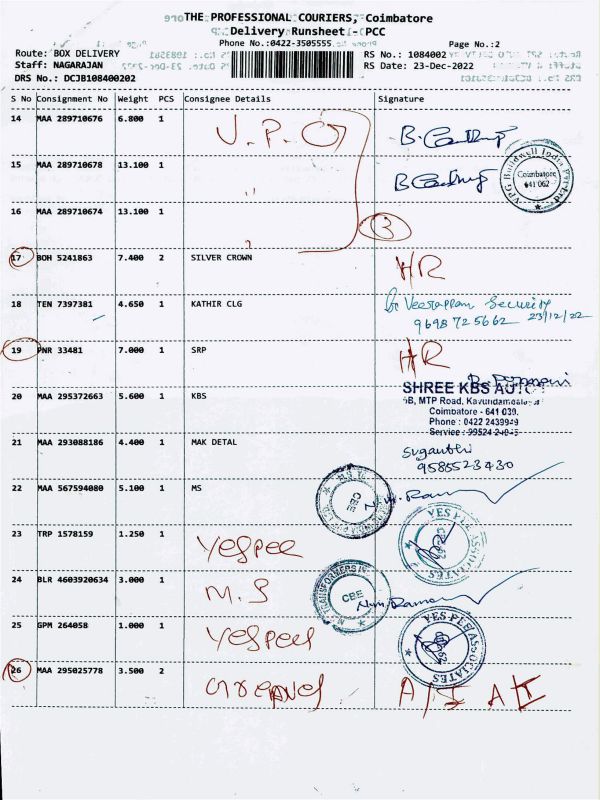 THE PROFESSIONAL COURIERS, Coimbatore
Delivery Runsheet - PCC
Phone No.:0422-3505555
Page No.:2
Route: BOX DELIVERY
RS No.: 1084002
Staff: NAGARAJAN
RS Date: 23-Dec-2022
DRS No.: DCJB108400202
S No Consignment No Weight PCS Consignee Details Signature
14 MAA 289710676 6.800 1
15 MAA 289710678 13.100 1
VPG Buildwell India Pvt Ltd
Coimbatore
641 062
16 MAA 289710674 13.100 1
3
17 BOH 5241863 7.400 2 SILVER CROWN HR
18 TEN 7397381 4.650 1 KATHIR CLG Veerappan Security
9698725662 23/12/22
19 PNR 33481 7.000 1 SRP HR
20 MAA 295372663 5.600 1 KBS SHREE KBS AUTO
MTP Road,
Coimbatore - 641 030.
Phone : 0422 2439949
Service : 99524
21 MAA 293088186 4.400 1 MAK DETAL
9585523430
22 MAA 567594080 5.100 1 MS
CBE
YES-PEE ASSOCIATES
23 TRP 1578159 1.250 1 Yespee
24 BLR 4603920634 3.000 1 M.S
TRANSFORMERS
CBE
25 GPM 264058 1.000 1
YES-PEE ASSOCIATES
26 MAA 295025778 3.500 2